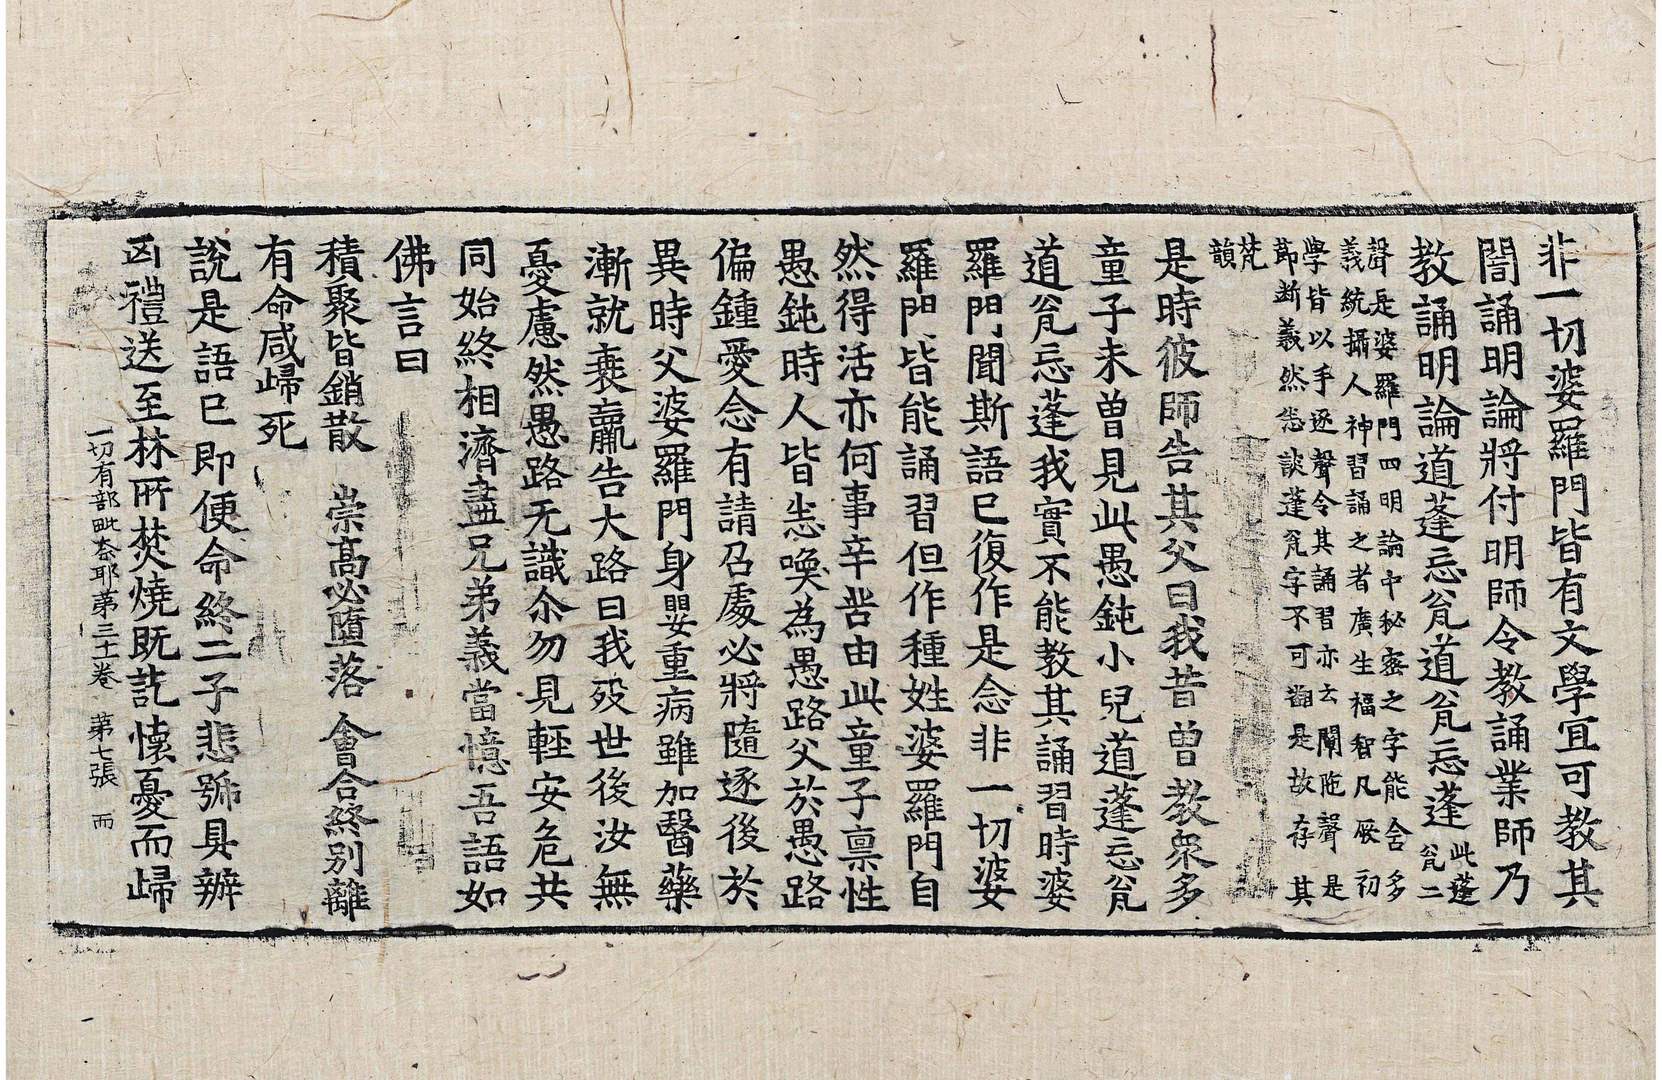 非一切婆羅門皆有文學宜可教其
誾誦明論將付明師令教誦業師乃
教誦明論道蓬忘瓮道瓮忘蓬此蓬
瓮二
聲是婆羅門四明論中秘密之字能含多
義統攝人神習誦之者廣生福智凡厥初
學皆以手逐聲令其誦習亦云闡陁聲是
節断義然悉談蓬瓮字不可翻是故存其
梵
韻
是時彼師告其父曰我昔曾教衆多
童子未曾見此愚鈍小兒道蓬忘瓮
道瓮忘蓬我實不能教其誦習時婆
羅門聞斯語已復作是念非一切婆
羅門皆能誦習但作種姓婆羅門自
然得活亦何事辛苦由此童子禀性
愚鈍時人皆悉喚為愚路父於愚路
偏鍾愛念有請召處必將隨逐後於
異時父婆羅門身嬰重病雖加醫藥
漸就衰羸告大路曰我殁世後汝無
憂慮然愚路无識尒勿見輕安危共
同始終相濟盡兄弟義當憶吾語如
佛言曰
積聚皆銷散 崇高必墮落 會合終別離
有命咸歸死
說是語已即便命終二子悲號具辦
凶禮送至林所焚燒既訖懷憂而歸
一切有部毗奈耶第三十一卷 第七張 而